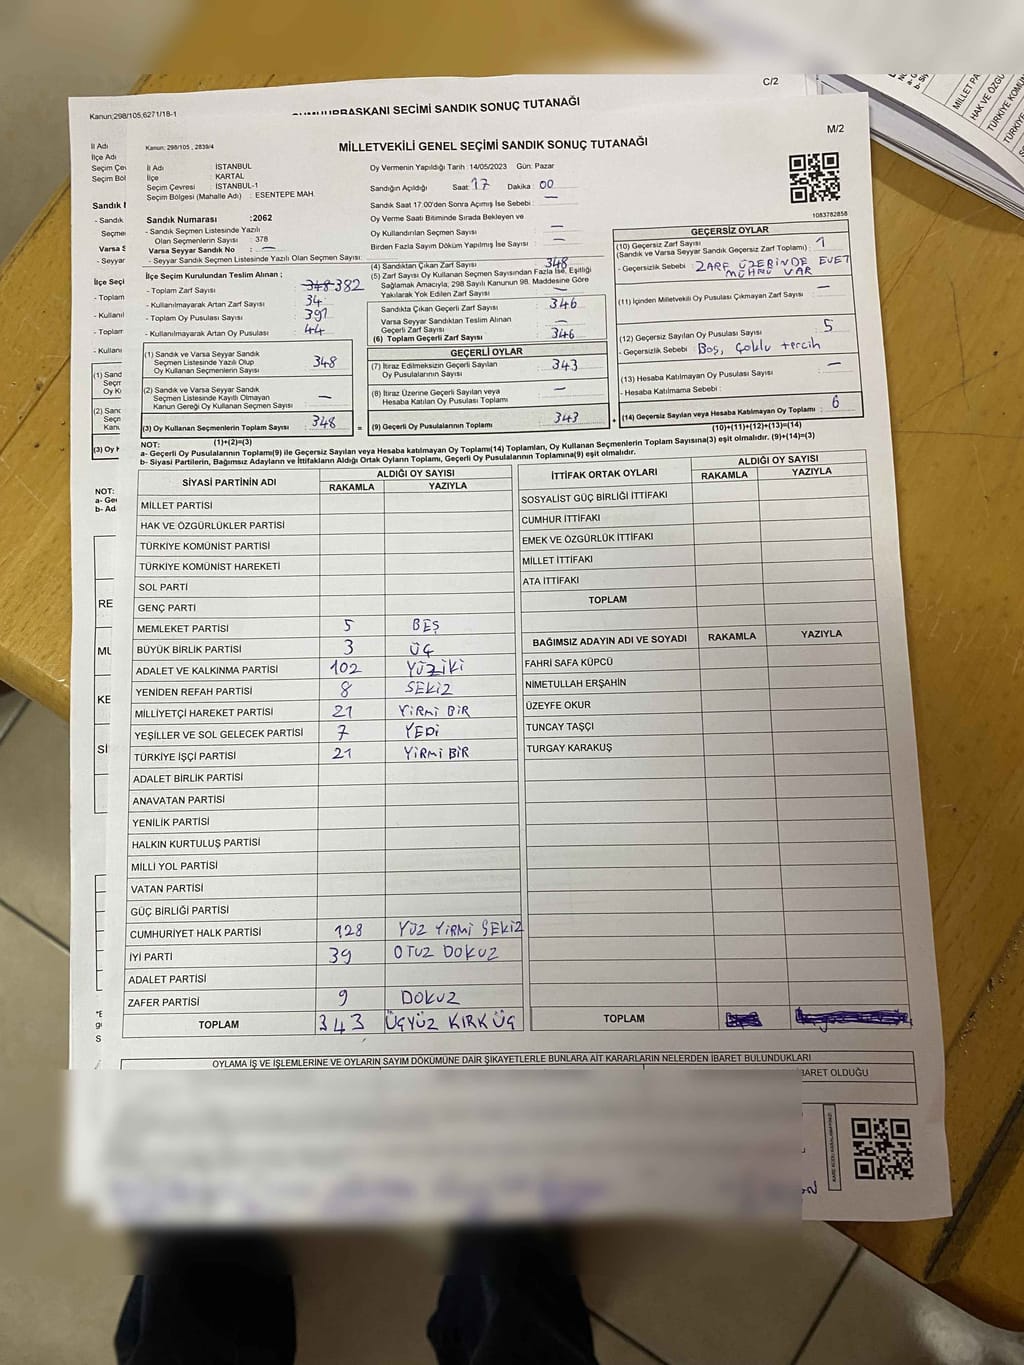 C/2
Kanun;298/105,6271/18-1
BAŞKANI SECİMİ SANDIK SONUÇ TUTANAĞI
M/2
Kanun: 298/105 , 2839/4
MİLLETVEKİLİ GENEL SEÇİMİ SANDIK SONUÇ TUTANAĞI
İl Adı : İSTANBUL
İlçe : KARTAL
Seçim Çevresi : İSTANBUL-1
Seçim Bölgesi (Mahalle Adı) : ESENTEPE MAH.
Oy Vermenin Yapıldığı Tarih :14/05/2023 Gün: Pazar
Sandığın Açıldığı Saat: 17 Dakika : 00
Sandık Saat 17.00'den Sonra Açılmış İse Sebebi : —
Oy Verme Saati Bitiminde Sırada Bekleyen ve
Oy Kullandırılan Seçmen Sayısı : —
Birden Fazla Sayım Döküm Yapılmış İse Sayısı : —
1083782858
Sandık Numarası :2062
- Sandık Seçmen Listesinde Yazılı
Olan Seçmenlerin Sayısı : 378
Varsa Seyyar Sandık No : —
- Seyyar Sandık Seçmen Listesinde Yazılı Olan Seçmen Sayısı:
İlçe Seçim Kurulundan Teslim Alınan ;
- Toplam Zarf Sayısı : 348 382
- Kullanılmayarak Artan Zarf Sayısı : 34
- Toplam Oy Pusulası Sayısı : 391
- Kullanılmayarak Artan Oy Pusulası : 44
(1) Sandık ve Varsa Seyyar Sandık
Seçmen Listesinde Yazılı Olup
Oy Kullanan Seçmenlerin Sayısı : 348
(2) Sandık ve Varsa Seyyar Sandık
Seçmen Listesinde Kayıtlı Olmayan
Kanun Gereği Oy Kullanan Seçmen Sayısı : —
(3) Oy Kullanan Seçmenlerin Toplam Sayısı : 348
(4) Sandıktan Çıkan Zarf Sayısı : 348
(5) Zarf Sayısı Oy Kullanan Seçmen Sayısından Fazla İse, Eşitliği
Sağlamak Amacıyla; 298 Sayılı Kanunun 98. Maddesine Göre
Yakılarak Yok Edilen Zarf Sayısı : —
Sandıkta Çıkan Geçerli Zarf Sayısı : 346
Varsa Seyyar Sandıktan Teslim Alınan
Geçerli Zarf Sayısı : —
(6) Toplam Geçerli Zarf Sayısı : 346
GEÇERLİ OYLAR
(7) İtiraz Edilmeksizin Geçerli Sayılan
Oy Pusulalarının Sayısı : 343
(8) İtiraz Üzerine Geçerli Sayılan veya
Hesaba Katılan Oy Pusulası Toplamı : —
= (9) Geçerli Oy Pusulalarının Toplamı : 343
GEÇERSİZ OYLAR
(10) Geçersiz Zarf Sayısı : 1
(Sandık ve Varsa Seyyar Sandık Geçersiz Zarf Toplamı)
- Geçersizlik Sebebi : ZARF ÜZERİNDE EVET
MÜHRÜ VAR
(11) İçinden Milletvekili Oy Pusulası Çıkmayan Zarf Sayısı : —
(12) Geçersiz Sayılan Oy Pusulası Sayısı : 5
- Geçersizlik Sebebi : Boş, Çoklu tercih
(13) Hesaba Katılmayan Oy Pusulası Sayısı : —
- Hesaba Katılmama Sebebi :
+ (14) Geçersiz Sayılan veya Hesaba Katılmayan Oy Toplamı : 6
(10)+(11)+(12)+(13)=(14)
NOT: (1)+(2)=(3)
a- Geçerli Oy Pusulalarının Toplamı(9) ile Geçersiz Sayılan veya Hesaba katılmayan Oy Toplamı(14) Toplamları, Oy Kullanan Seçmenlerin Toplam Sayısına(3) eşit olmalıdır. (9)+(14)=(3)
b- Siyasi Partilerin, Bağımsız Adayların ve İttifakların Aldığı Oyların Toplamı, Geçerli Oy Pusulalarının Toplamına(9) eşit olmalıdır.
SİYASİ PARTİNİN ADI ALDIĞI OY SAYISI
RAKAMLA YAZIYLA
MİLLET PARTİSİ
HAK VE ÖZGÜRLÜKLER PARTİSİ
TÜRKİYE KOMÜNİST PARTİSİ
TÜRKİYE KOMÜNİST HAREKETİ
SOL PARTİ
GENÇ PARTİ
MEMLEKET PARTİSİ 5 BEŞ
BÜYÜK BİRLİK PARTİSİ 3 ÜÇ
ADALET VE KALKINMA PARTİSİ 102 YÜZİKİ
YENİDEN REFAH PARTİSİ 8 SEKİZ
MİLLİYETÇİ HAREKET PARTİSİ 21 YİRMİ BİR
YEŞİLLER VE SOL GELECEK PARTİSİ 7 YEDİ
TÜRKİYE İŞÇİ PARTİSİ 21 YİRMİ BİR
ADALET BİRLİK PARTİSİ
ANAVATAN PARTİSİ
YENİLİK PARTİSİ
HALKIN KURTULUŞ PARTİSİ
MİLLİ YOL PARTİSİ
VATAN PARTİSİ
GÜÇ BİRLİĞİ PARTİSİ
CUMHURİYET HALK PARTİSİ 128 YÜZ YİRMİ SEKİZ
İYİ PARTİ 39 OTUZ DOKUZ
ADALET PARTİSİ
ZAFER PARTİSİ 9 DOKUZ
TOPLAM 343 ÜÇYÜZ KIRK ÜÇ
İTTİFAK ORTAK OYLARI ALDIĞI OY SAYISI
RAKAMLA YAZIYLA
SOSYALİST GÜÇ BİRLİĞİ İTTİFAKI
CUMHUR İTTİFAKI
EMEK VE ÖZGÜRLÜK İTTİFAKI
MİLLET İTTİFAKI
ATA İTTİFAKI
TOPLAM
BAĞIMSIZ ADAYIN ADI VE SOYADI RAKAMLA YAZIYLA
FAHRİ SAFA KÜPCÜ
NİMETULLAH ERŞAHİN
ÜZEYFE OKUR
TUNCAY TAŞÇI
TURGAY KARAKUŞ
TOPLAM
OYLAMA İŞ VE İŞLEMLERİNE VE OYLARIN SAYIM DÖKÜMÜNE DAİR ŞİKAYETLERLE BUNLARA AİT KARARLARIN NELERDEN İBARET BULUNDUKLARI
BARET OLDUĞU